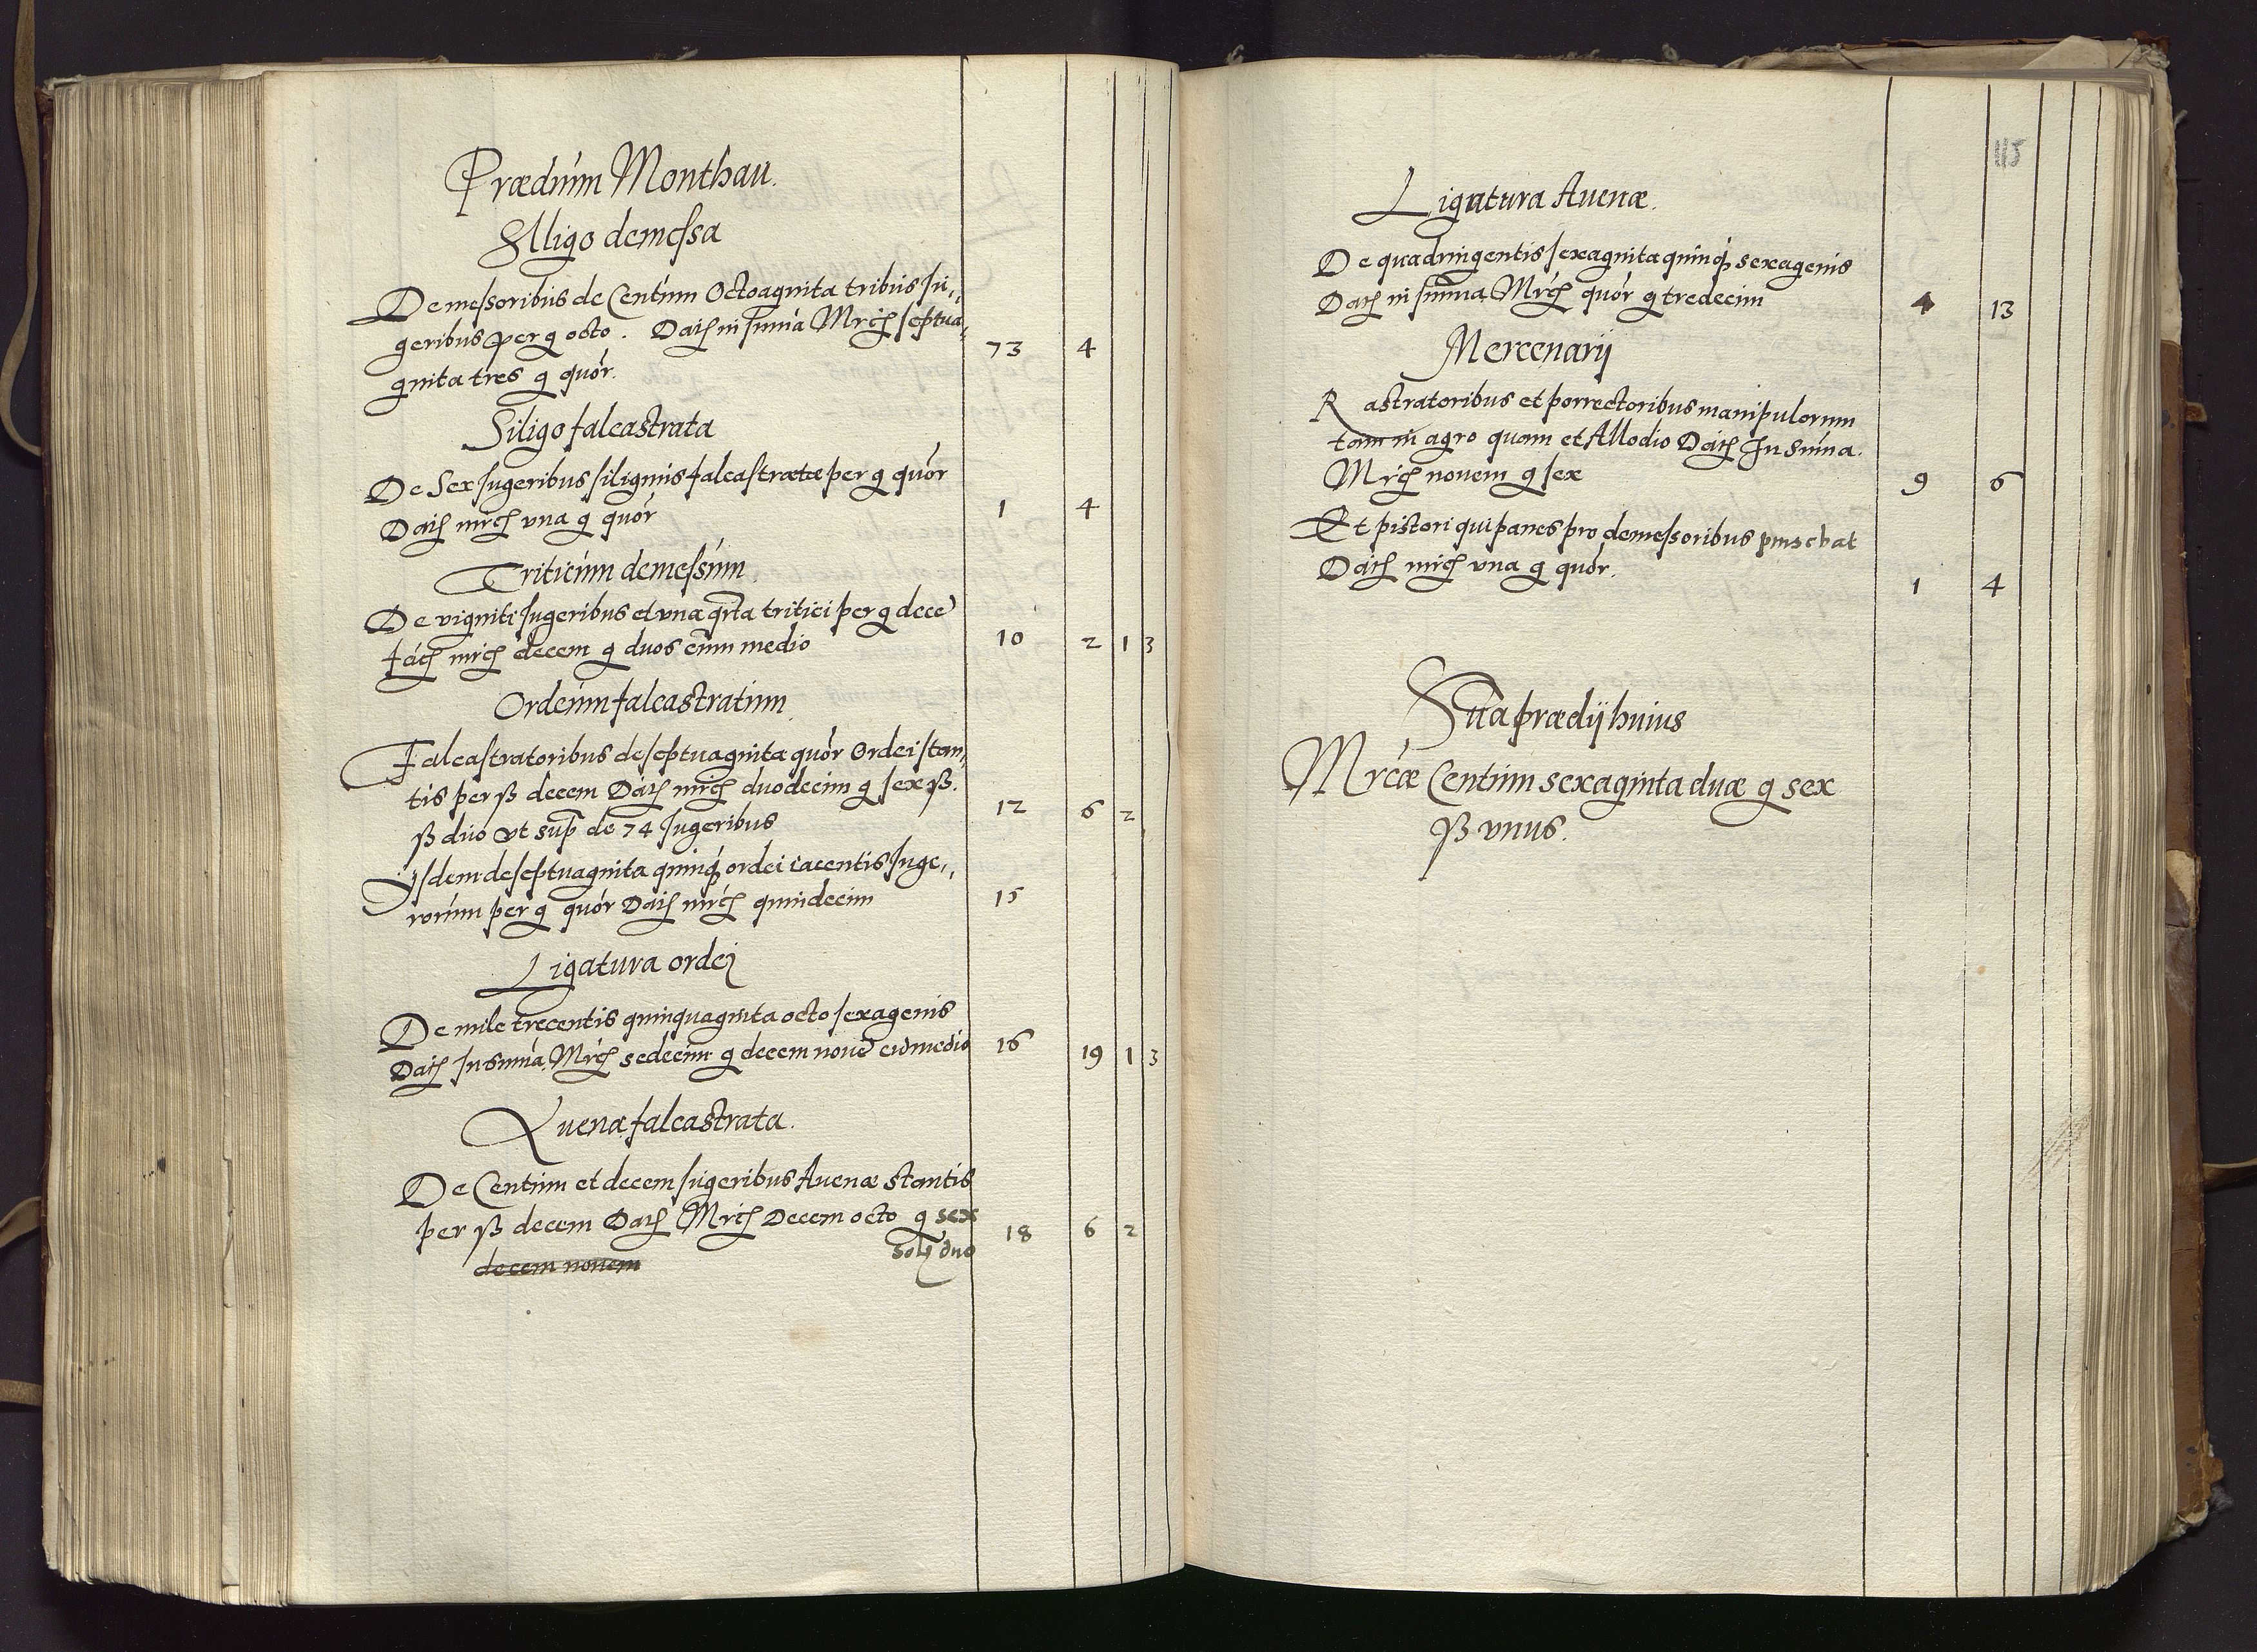 Prædium Monthau.
Siligo demessa
Demessoribus de Centum Octoaginta tribus Iu-
geribus per g octo. Datȩ in summa Mrcȩ septua-
ginta tres g quor. 73 4
Siligo falcastrata
De Sex Iugeribus siliginis falcastratæ per g quor
Datȩ mrcȩ vna g quor 1 4
Triticum demessum.
De viginti Iugeribus et vna qrta tritici per g dece
fact mrcȩ decem g duos cum medio 10 2 1 3
Ordeum falcastratum.
Falcastratoribus de septuaginta quor Ordei stan-
tis per ß decem Datȩ mrcȩ duodecim g sex ß.
ß duo vt sup de 74 Iugeribus 12 6 2
Ijsdem de septuaginta quinq ordei iacentis Iuge-
rorum per g quor Datȩ mrcȩ quindecim 15
Ligatura ordej
De mile trecentis quinquaginta octo sexagenis
Datȩ In summa Mrcȩ sedecim g decem noue cu medio 16 19 1 3
Auena falcastrata.
De Centum et decem Iugeribus Auenæ stantis
per ß decem Datȩ Mrcȩ Decem octo g sex 18 6 2
decem nouem duo
115
Ligatura Auenæ.
De quadringentis sexaginta quinq sexagenis
Datȩ in summa Mrcȩ quor g tredecim 4 13
Mercenarij
Rastratoribus et porrectoribus manipulorum
tam in agro quam et Allodio Datȩ In Summa.
Mrcȩ nouem g sex 9 6
Et pistori qui panes pro demessoribus pinsebat
Datȩ mrcȩ vna g quor. 1 4
Suma prædij huius
Mrcæ Centum sexaginta duæ g sex
ß vnus.